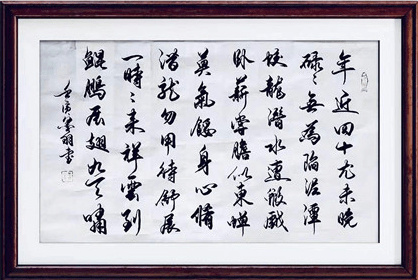 年近四十尤未晚
碌々無為陷泥潭
蛟龍潛水遭戲
卧薪嘗膽似東蟬
莫氣餒身心脩
潛龍勿用待舒展
一時々來祥雲到
鯤鵬展翅九天嘯
書